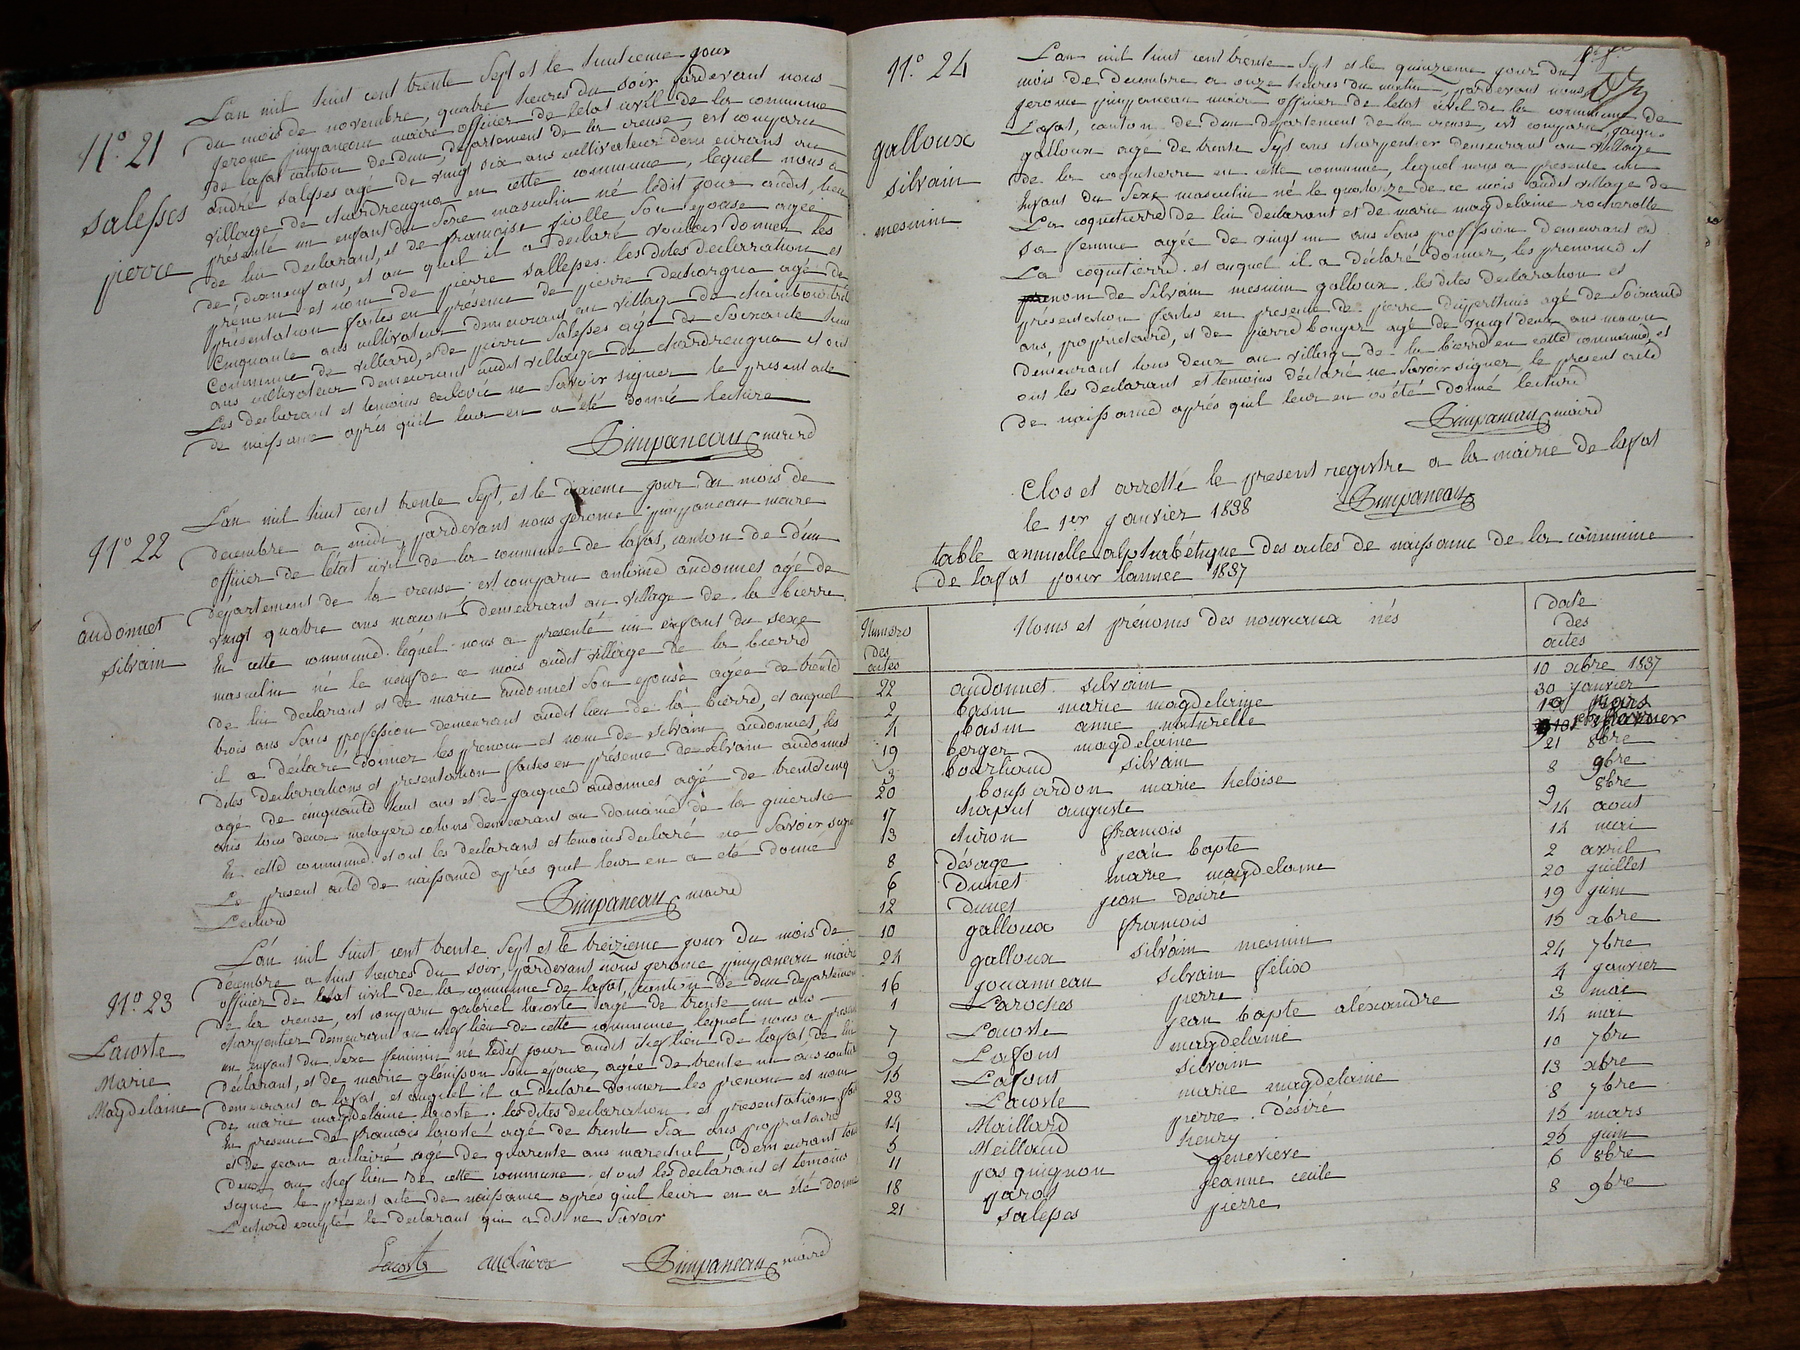 N.º 21
salesses
pierre
L'an mil huit cent trente sept et le huitieme jour
du mois de novembre, quatre heures du soir pardevant nous
jerome pimpaneau maire officier de letat civil de la commune
de lafat canton de dun, departement de la creuse, est comparu
andré salesses agé de vingt six ans cultivateur demeurant au
village de chardreugna en cette commune, lequel nous a
présenté un enfant du sexe masculin né ledit jour audit lieu
de lui declarant, et de françoise fiolle son epouse agée
de dixneuf ans, et au quel il a déclaré vouloir donner les
prénom et nom de pierre sallesses. les dites declaration et
présentation faites en présence de pierre agé de
cinquante ans cultivateur demeurant au village de
commune de villard, et de pierre salesses agé de soixante
ans cultivateur demeurant audit village de chardreugna et ont
Les declarant et temoins déclaré ne savoir signer le present acte
de naissance après qu'il leur en a été donné lecture
Pimpaneau maire
N.º 22
audonnet
silvain
L'an mil huit cent trente sept, et le dixieme jour du mois de
decembre a midi, pardevant nous jerome pimpaneau maire
officier de l'état civil de la commune de lafat, canton de dun
département de la creuse, est comparu antoine audonnet agé de
vingt quatre ans macon demeurant au village de la bierre
En cette commune. lequel nous a presenté un enfant du sexe
masculin né le neuf de ce mois audit village de la bierre
de lui declarant et de marie audonnet son epouse agée de trente
trois ans sans profession demeurant audit lieu de la bierre, et auquel
il a déclaré donner les prenom et nom de silvain audonnet, les
dites declarations et presentation faites en présence de silvain audonnet
agé de cinquante huit ans et de jacques audonnet agé de trente cinq
ans tous deux metayers colons demeurant au domaine de la
En cette commune. et ont les declarant et temoins declaré ne savoir signer
Le present acte de naissance après quil leur en a été donné
Lecture
Pimpaneau maire
N.º 23
Lacoste
Marie
Magdelaine
L'an mil huit cent trente sept et le treizieme jour du mois de
décembre a huit heures du soir, pardevant nous jerome pimpaneau maire
officier de letat civil de la commune de lafat, canton de dun departement
de la creuse, est comparu gabriel lacoste agé de trente un ans
charpentier demeurant au chef lieu de cette commune lequel nous a presenté
un enfant du sexe feminin né ledit jour audit chef lieu de lafat de lui
déclarant, et de marie glénisson son epouse, agée de trente un ans
demeurant a lafat, et auquel il a declaré donner les prenom et nom
de marie magdelaine lacoste. les dites declaration et presentation faites
En presence de francois lacoste agé de trente six ans propriétaire
et de jean auclaire agé de quarente ans marechal, demeurant tous
deux au chef lieu de cette commune. et ont les declarant et temoins
signé le present acte de naissance après quil leur en a été donné
Lecture excepté le declarant qui a dit ne savoir
Lacoste auclaire Pimpaneau maire
N.º 24
galloux
silvain
mesmin
L'an mil huit cent trente sept et le quinzieme jour du
mois de decembre a onze heures du matin, pardevant nous
jerome pimpaneau maire officier de letat civil de la commune de
Lafat, canton de dun departement de la creuse, est comparu
galloux agé de trente sept ans charpentier demeurant au village
de la coquetierre en cette commune, lequel nous a presenté un
Enfant du sexe masculin né le quatorze de ce mois audit village de
La coquetierre de lui declarant et de marie magdelaine rocherolle
sa femme agée de vingt un ans sans profession demeurant a
La coquetierre. et auquel il a déclaré donner, les prenoms et
nom de Silvain mesmin galloux. les dites declaration et
présentation faites en presence de pierre duperthuis agé de soixante
ans, propriétaire, et de pierre bouyer agé de vingt deux ans macon
demeurant tous deux au village de la bierre en cette commune, et
ont les declarant et temoins déclaré ne savoir signer le present acte
de naissance après quil leur en a été donné lecture
Pimpaneau maire
Clos et arretté le present registre a la mairie de lafat
le 1er janvier 1838 Pimpaneau
table annuelle alphabétique des actes de naissance de la commune
de lafat pour l'année 1837
Numero des actes Noms et prénoms des nouveaux nés date des actes
22 audonnet silvain 10 xbre 1837
2 basin marie magdelaine 30 janvier
4 basin anne naturelle 10 mars
19 berger magdelaine
3 bourliaud silvain
20 boussardon marie heloise
17 chaput auguste
13 chiron francois
8 désage jean bapte
6 dunet marie magdelaine
12 dunet jean desiré
10 galloux francois
24 galloux silvain mesmin
16 jouanneau silvain félix
1 Laroche pierre
7 Lacoste jean bapte alexandre
9 Lafont magdelaine
15 Lafont silvain
23 Lacoste marie magdelaine
14 Maillard pierre désiré
5 Meillaud henry
11 pasquignon genevieve
18 parot jeanne cecile
21 salesses pierre
21 8bre
8 9bre
9 8bre
14 aout
14 mai
2 avril
20 juillet
19 juin
15 xbre
24 7bre
4 janvier
3 mai
14 mai
10 7bre
13 xbre
8 7bre
15 mars
25 juin
6 8bre
8 9bre